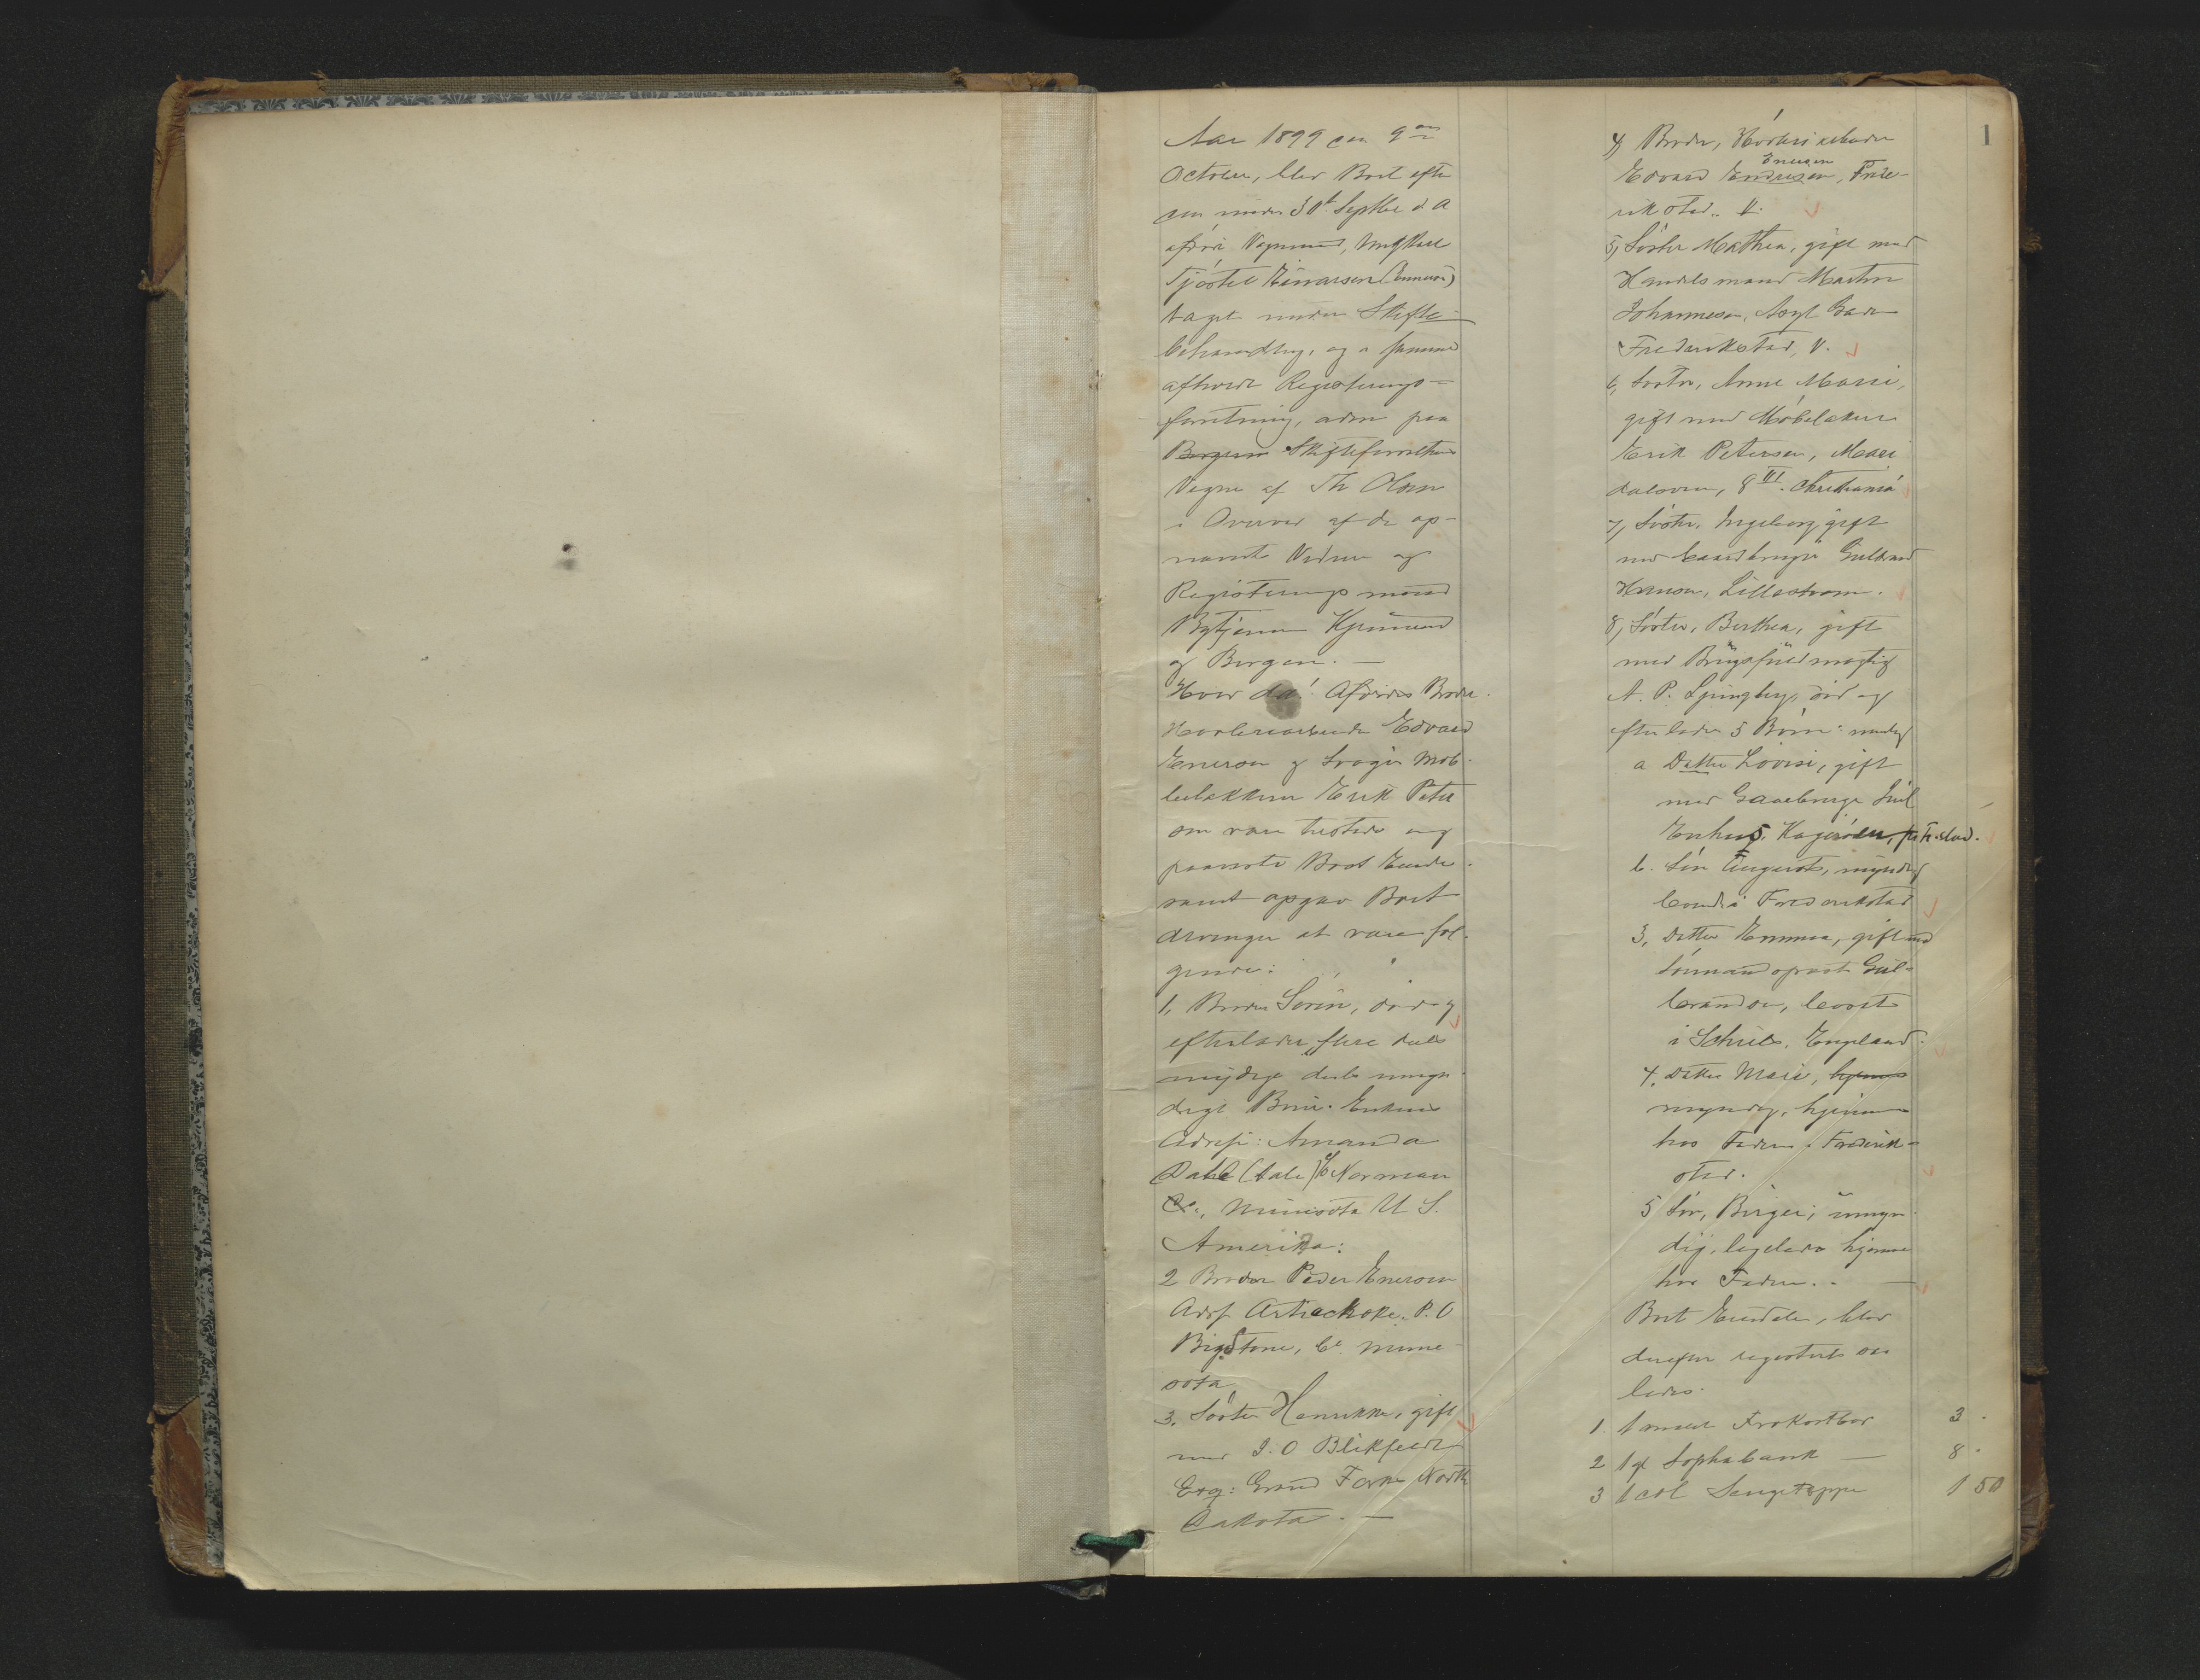 Aar 1899 den 9de
October, blev Boet efter
den under 30t Septbr d A
afdøde Vognmand, Ungkarl
Tjøstel Einarsen (Enersen)
taget under Skifte
behandling, og i samme
afholdt Registrerings-
forretning, adm paa
Skifteforvalterens
Vegne af Th Olsen
i Overvær af de op-
nævnte Vidner og
Registreringsmænd
Bytjener
og Bergen. —
Hvor da! Afdødes Broder
Høvleriarbeider Edvard
Enersen og Svoger Møb-
bellakkerer Erik Peter
som vare tilstede og
paaviste Boets Eiendele
samt opgav Boets
Arvinger at være føl-
gende:
1, Broder Sørin, død og
efterlader flere dels
myndige dels umyn-
dige Børn. Enkens
Adresse: Amanda
Dahl (Dale) Norman
Co., Minisota U S.
Amerika:
2 Broder Peder Enersen
Adrs. Artieckoke. P. O
BigStone, Co. Minne-
sota
3. Søster Henrikke, gift
med J. O Blikfeldt
Esq: Grand Forks North
Dakota. —
1
4) Broder, Høvleriarbeider
Edvard Endresen Enersen, Frede-
rikstad. V.
5) Søster Mathea, gift med
Handelsmand Martin
Johannesen, Asyl Gaden
Frederikstad, V.
6, Søster, Anne Marie,
gift med Møbellakerer
Erik Petersen, Mari
dalsveien, 8 III. Christiania
7, Søster, Ingeborg gift
med Gaardbruger Gulbrand
Hansen, Lillestrøm.
8, Søster, Berthea, gift
med Brugsfuldmægtig
A. P. Ljungberg, død og
efterlader 5 Børn: nemlig
a Datter Lovise, gift
med Gaardbruger
Kagerøen, pr Fr.stad.
b. Søn August, myndig
boende i Frederikstad
3, Datter Emma, gift med
Sømandsprest Gul-
brandsen, bosat
i Schields, England.
4, Datter Marie, hjeme
myndig, hjemme
hos Faderen i Frederik-
stad.
5 Søn, Birger, umyn-
dig, ligeledes hjemme
hos Faderen. —
Boets Eiendele, blev
derefter registreret saa
ledes.
1. 1 malet Frokostbor 3 -
2 1 gl Sophabænk — 8 -
3 1 col Sengeteppe 1 50